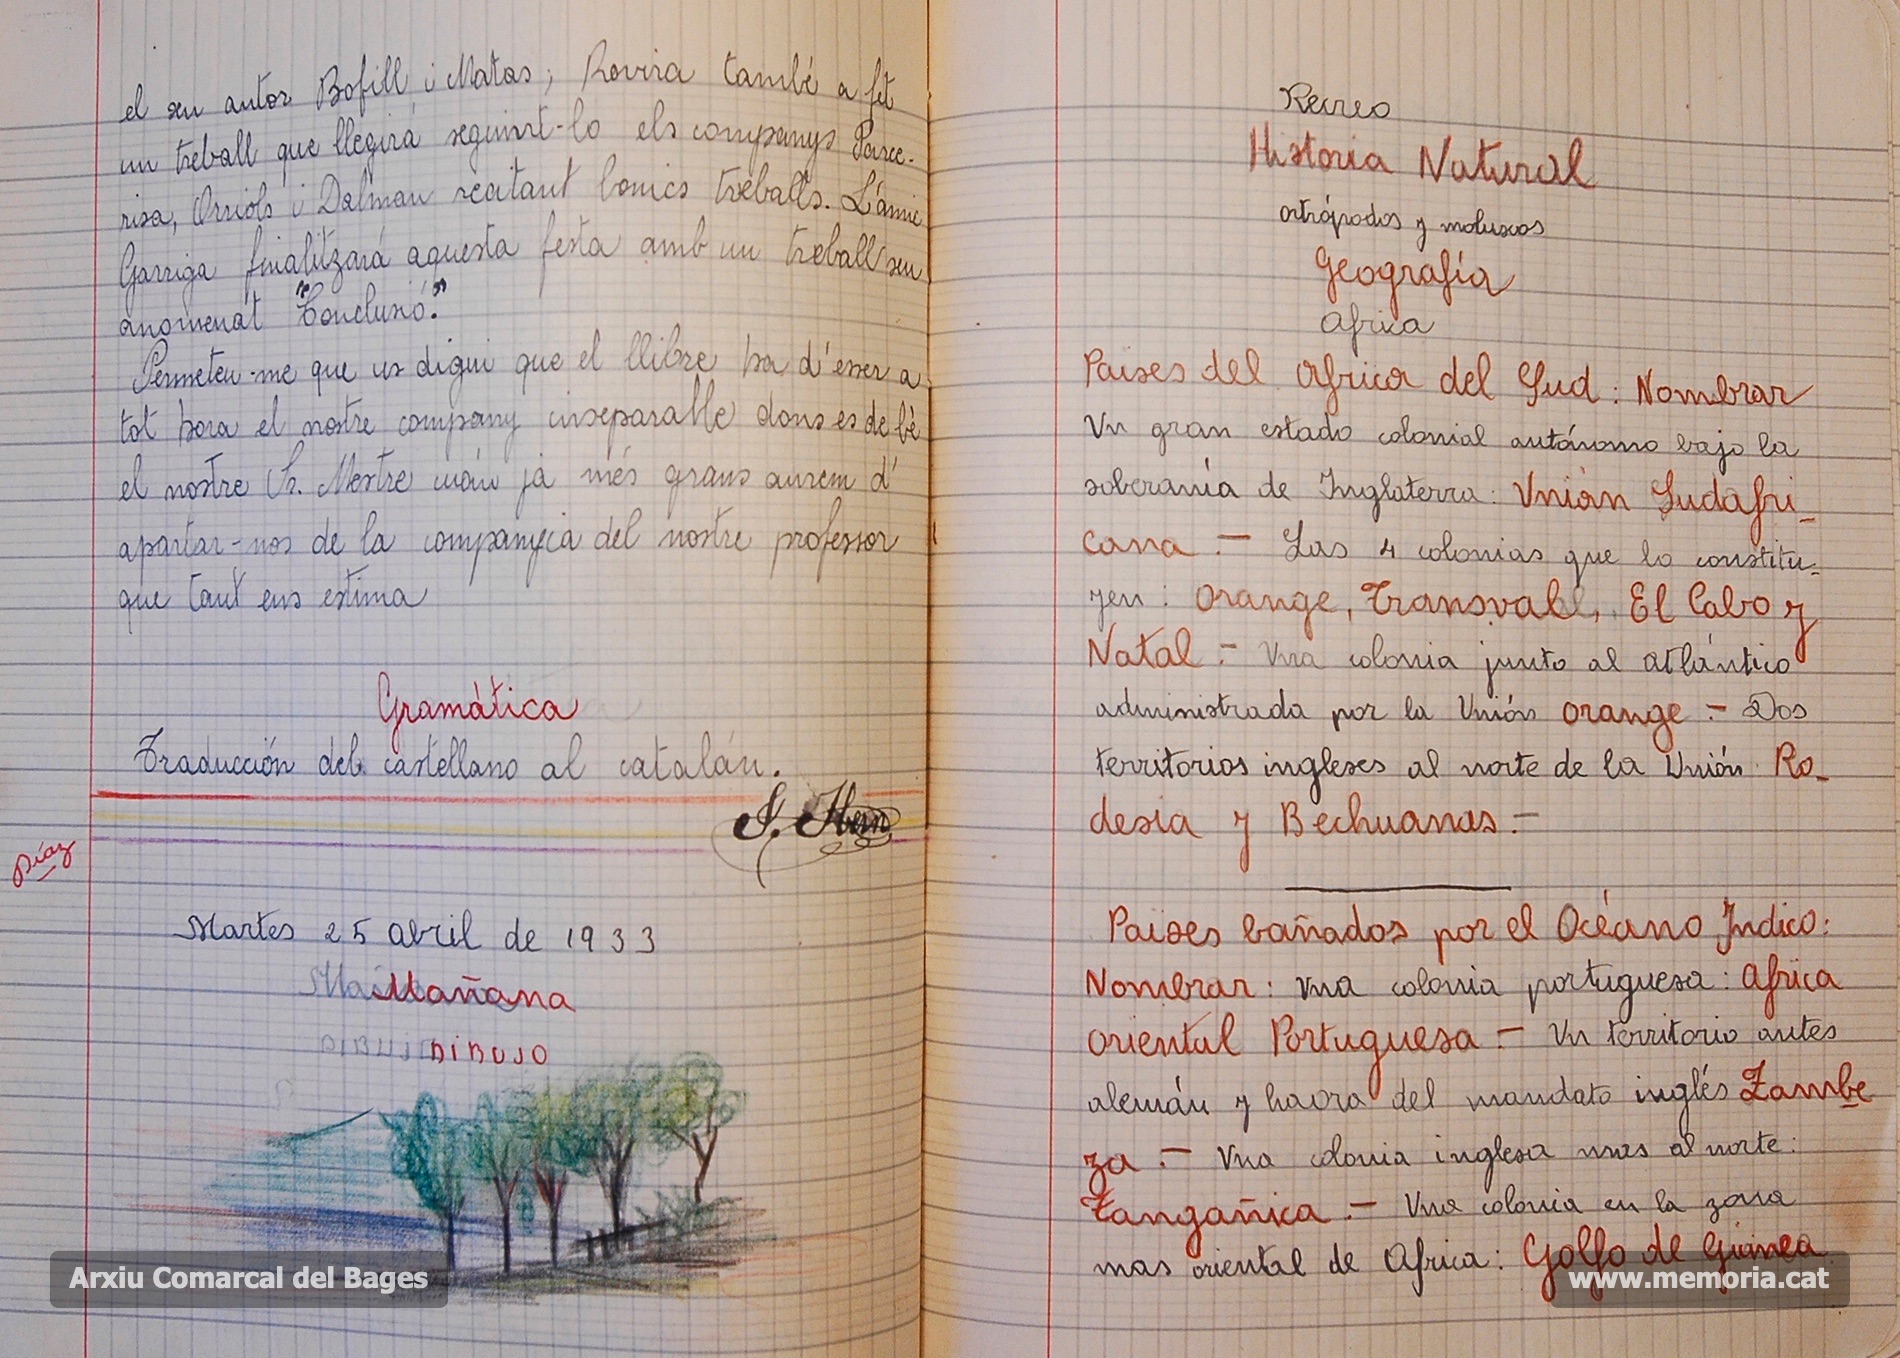 el seu autor Bofill i Matas; Rovira també a fet
un treball que llegirá seguint-lo els companys Parce-
risa, Orriols i Dalmau recitant bonics treballs. L'amic
Garriga finalitzará aquesta festa amb un treball seu
anomenat "Conclusió".
Permeteu-me que us digui que el llibre ha d'esser a
tot hora el nostre company inseparable dons es de bé
el nostre Sr. Mestre quan já més grans aurem d'
apartar-nos de la companyia del nostre professor
que tant ens estima
Gramática
Traducción del castellano al catalán.
Díaz
Martes 25 abril de 1933
Mañana
DIBUJO
Arxiu Comarcal del Bages
Recreo
Historia Natural
artrópodos y moluscos
Geografía
Africa
Paises del Africa del Sud: Nombrar
Un gran estado colonial autónomo bajo la
soberanía de Inglaterra: Unión Sudafri-
cana.- Las 4 colonias que lo constitu-
yen: Orange, Transval, El Cabo y
Natal.- Una colonia junto al atlántico
administrada por la Unión Orange.- Dos
territorios ingleses al norte de la Unión Ro-
desia y Bechuanas.-
Paises bañados por el Océano Indico:
Nombrar: Una colonia portuguesa: Africa
Oriental Portuguesa.- Un territorio antes
alemán y haora del mandato inglés Zambe
za.- Una colonia inglesa mas al norte:
Tangañica.- Una colonia en la zona
mas oriental de Africa: Golfo de Guinea
www.memoria.cat